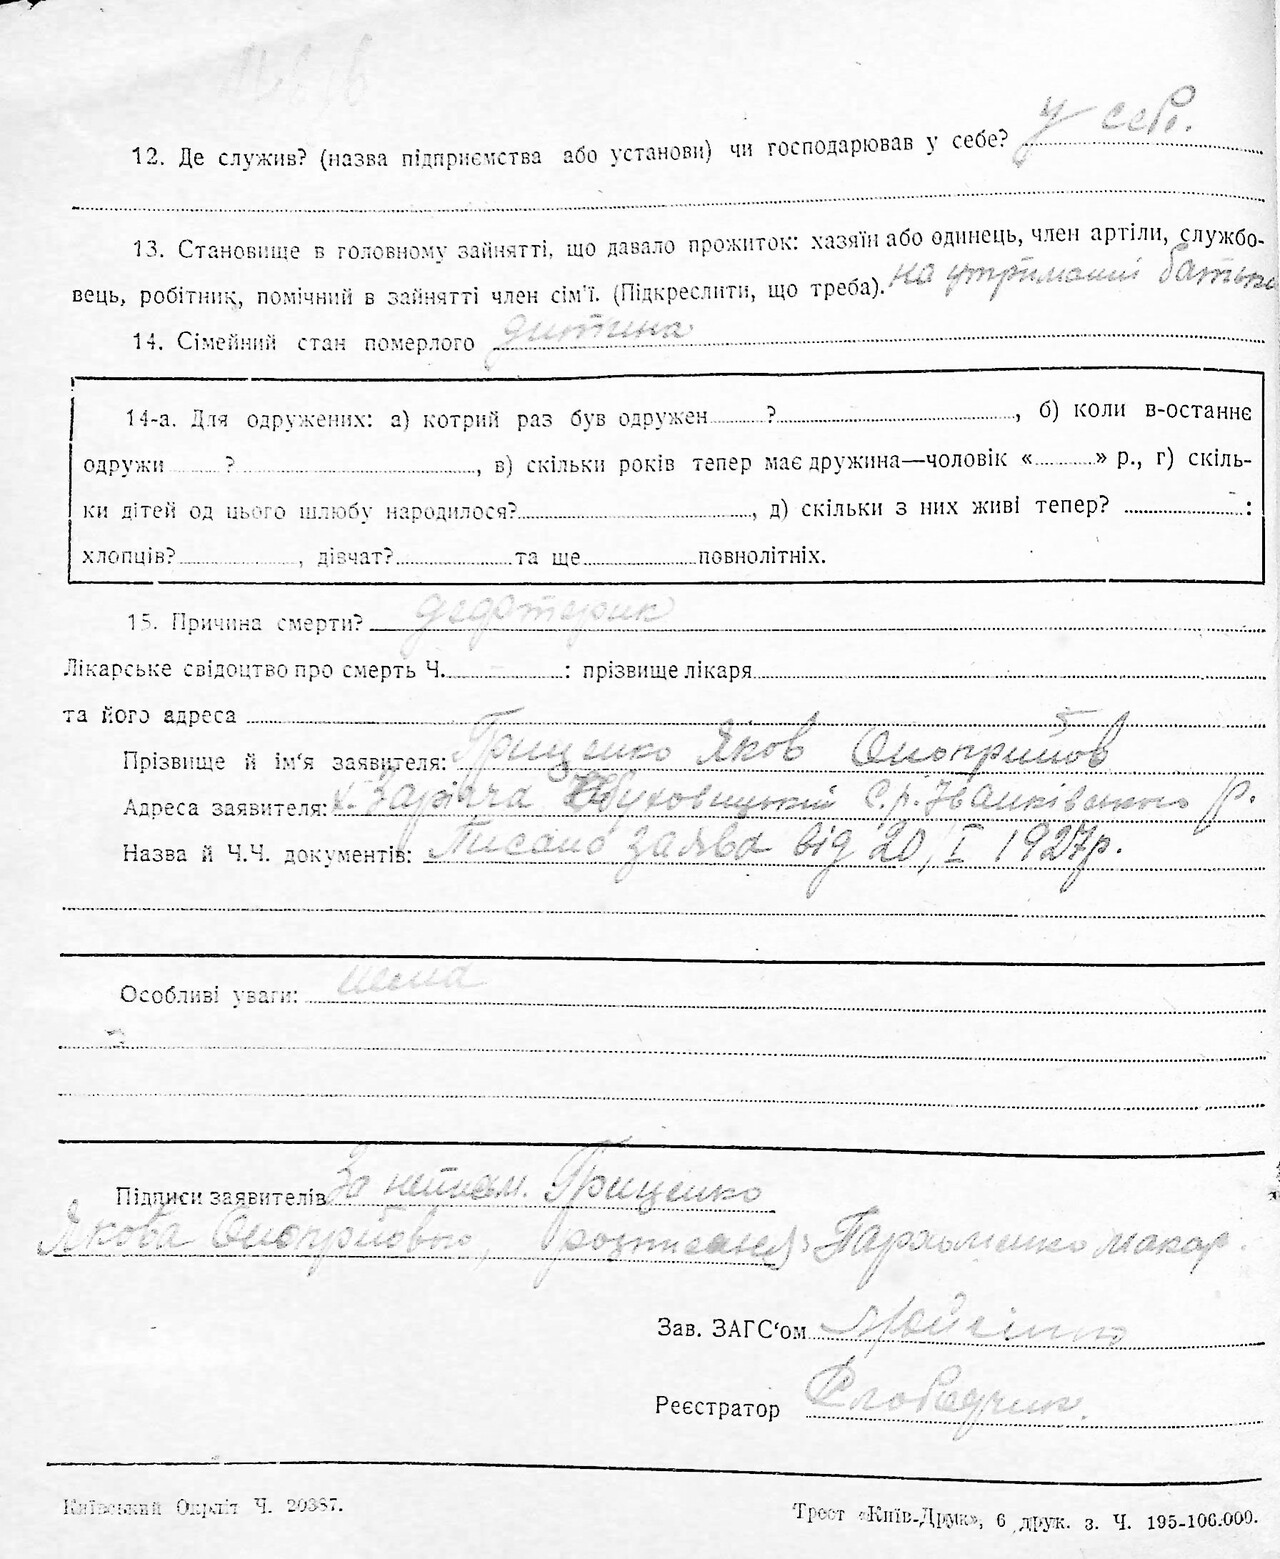 12. Де служив? (назва підприємства або установи) чи господарював у себе? у себе.
13. Становище в головному зайнятті, що давало прожиток: хазяїн або одинець, член артіли, службо-
вець, робітник, помічний в зайнятті член сім'ї. (Підкреслити, що треба). на утриманні батька
14. Сімейний стан померлого дитина
14-а. Для одружених: а) котрий раз був одружен ?, б) коли в-останнє
одружи ?, в) скільки років тепер має дружина—чоловік « » р., г) скіль-
ки дітей од цього шлюбу народилося?, д) скільки з них живі тепер? :
хлопців?, дівчат? та ще повнолітніх.
15. Причина смерти?
Лікарське свідоцтво про смерть Ч. : прізвище лікаря
та його адреса
Прізвище й ім'я заявителя: Грищенко Яков Онопрійов
Адреса заявителя: х. Заріччя с.р. Іванківського р.
Назва й Ч.Ч. документів: заява від 20/I 1927р.
Особливі уваги: нема
Підписи заявителів За Грищенко
Якова Пархоменко Макар.
Зав. ЗАГС'ом
Реєстратор
Київський Окрліт Ч. 20387.
Трест «Київ-Друк», 6 друк. з. Ч. 195-106.000.